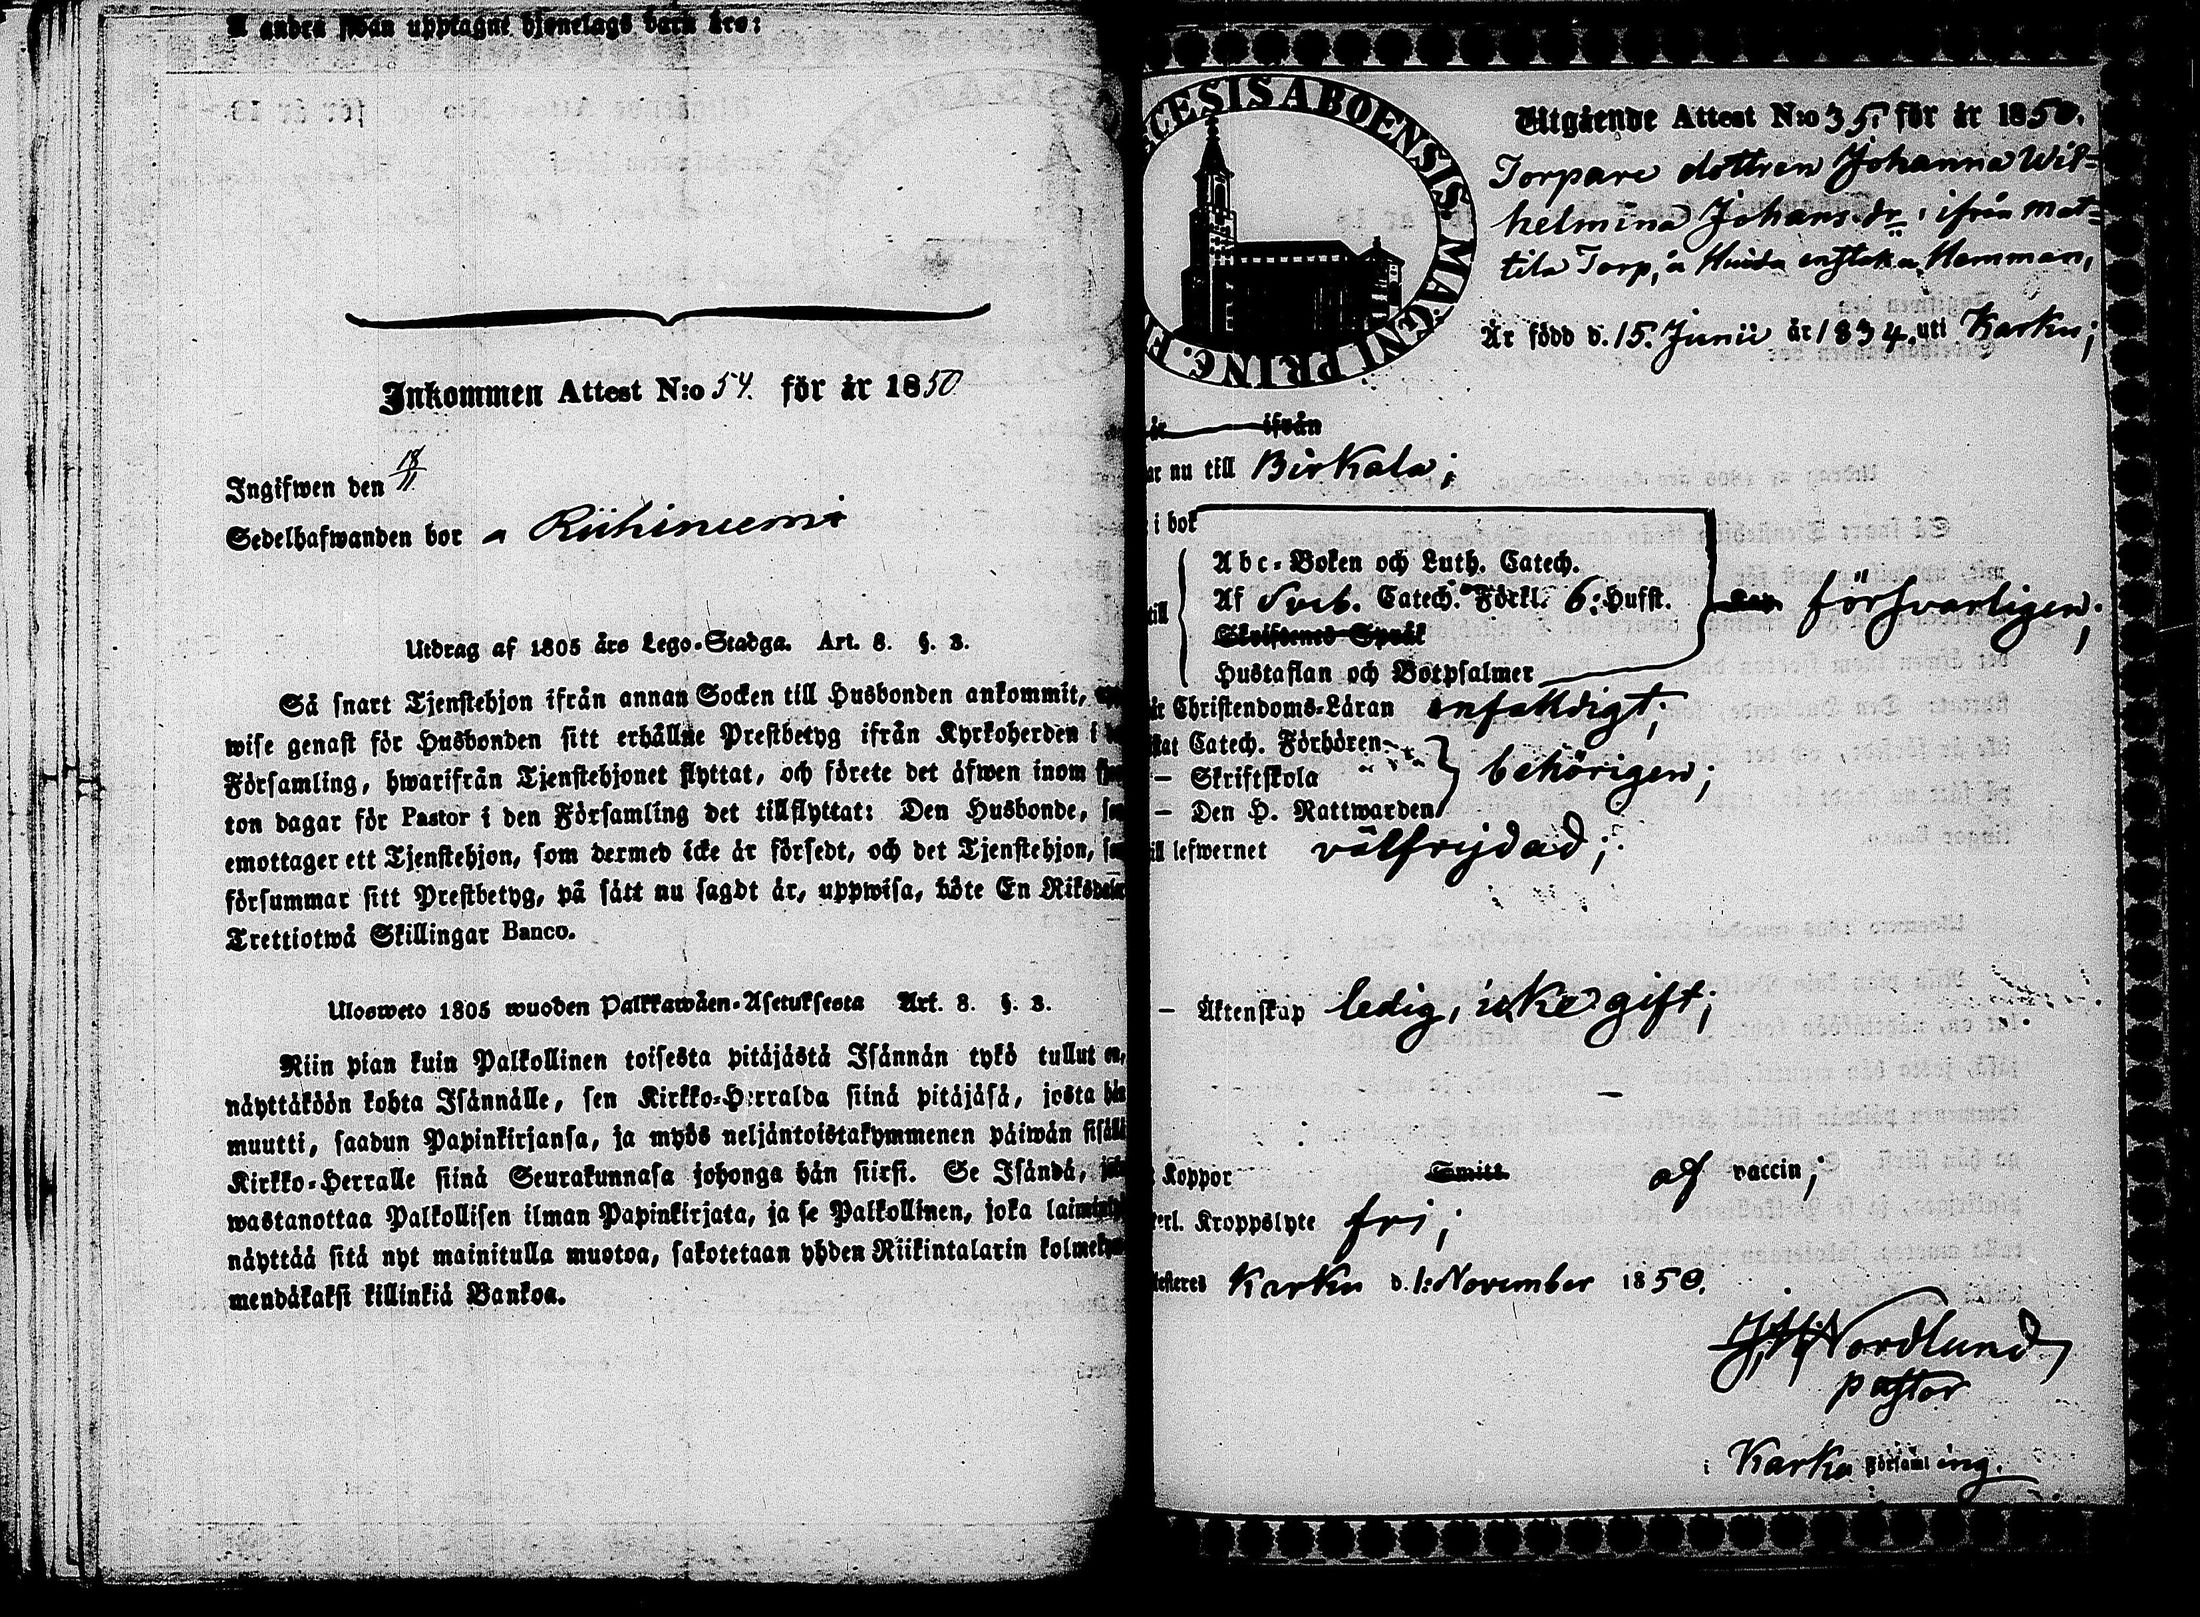 andra sidan upptagne hjonelags barn äro:
Inkommen Attest N:o 54. för år 1850
Ingifwen den 18/11
Sedelhafwanden bor a Riihiniemi
Utdrag af 1805 års Lego-Stadga. Art. 8. §. 3.
Så snart Tjenstehjon ifrån annan Socken till Husbonden ankommit,
wise genast för Husbonden sitt erhållne Prestbetyg ifrån Kyrkoherden i
Församling, hwarifrån Tjenstehjonet flyttat, och förete det äfwen inom
ton dagar för Pastor i den Församling det tillflyttat: Den Husbonde,
emottager ett Tjenstehjon, som dermed icke är försedt, och det Tjenstehjon,
försummar sitt Prestbetyg, på sätt nu sagdt är, uppwisa, böte En Riksdaler
Trettiotwå Skillingar Banco.
Ulosweto 1805 wuoden Palkkawäen-Asetuksesta Art. 8. §. 3.
Niin pian kuin Palkollinen toisesta pitäjästä Isännän tykö tullut on,
näyttäköön kohta Isännälle, sen Kirkko-Herralda siinä pitäjäsä, josta hän
muutti, saadun Papinkirjansa, ja myös neljäntoistakymmenen päiwän sisällä
Kirkko-Herralle siinä Seurakunnasa johonga hän siirsi. Se Isändä,
wastanottaa Palkollisen ilman Papinkirjata, ja se Palkollinen, joka
näyttää sitä nyt mainitulla muotoa, sakotetaan yhden Riikintalarin
mendäkaksi killinkiä Bankoa.
CESIS ABOENSIS MAGNI PRINC.
Utgående Attest N:o 35. för år 1850.
Torpare dottren Johanna Wil=
helmina Johans.dr, ifrån Mat=
tila Torp, a enstaka Hemman,
Är född d. 15. Junii år 1834. uti Karku;
är ifrån
nu till Birkala;
i bok
Abc-Boken och Luth. Catech.
till Af Sveb. Catech. Förkl. 6: Hufst. försvarligen;
Skriftenes Språk
Hustaflan och Botpsalmer
Christendoms-Läran enfaldigt;
Catech. Förhören
— Skriftskola behörigen;
— Den H. Nattwarden
lefwernet välfrijdad;
— Äktenskap ledig, icke gift;
Koppor Smitt. af vaccin;
Kroppslyte fri;
Karku d. 1. November 1850.
J. H. Nordlund
pastor
i Karku Församling.